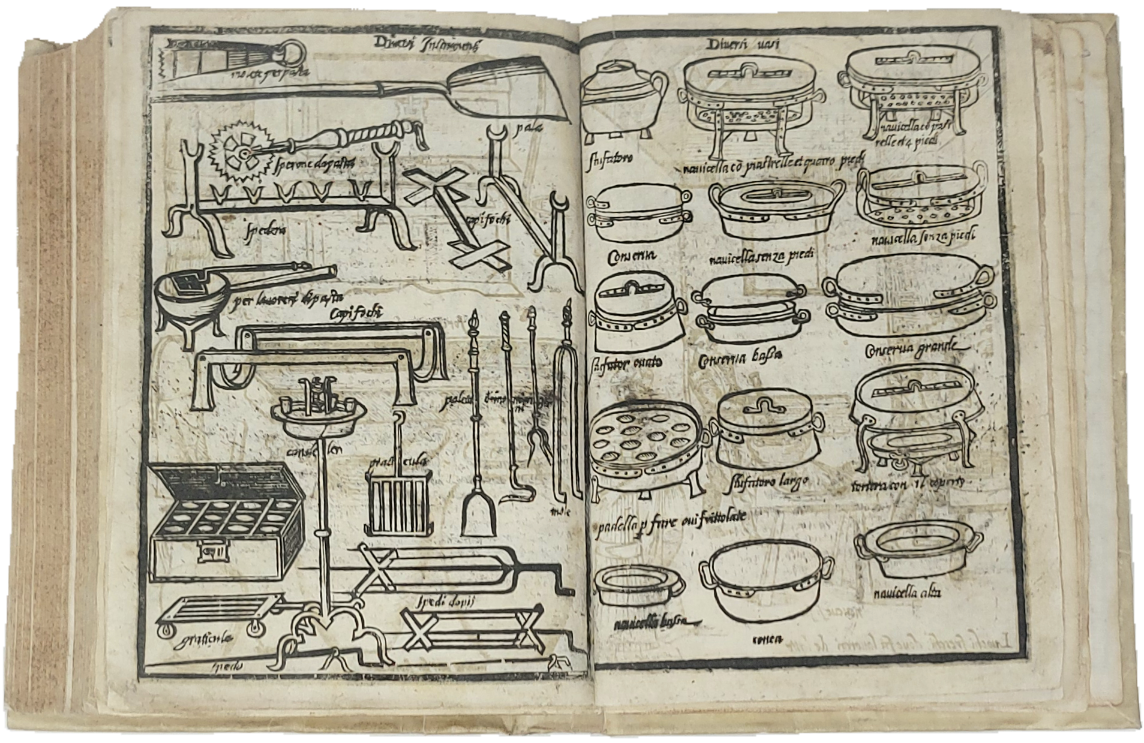 Diversi Instrumenti
pala
Sperone da pasta
capifochi
Spedero
per lavoreri di pasta
Capifochi
paletta
graticula
mole
Spedi dopij
graticula
Spedo
Diversi vasi
Stufatoro
navicella cō piastrelle et quatro piedi
navicella cō pias
trelle et 4 piedi
Conserva
navicella senza piedi
navicella senza piedi
Stufator ovato
Conserva bassa
Conserva grande
Stufatoro largo
tortiera con il coperto
padella p fare ovi frittolate
navicella bassa
conca
navicella alta